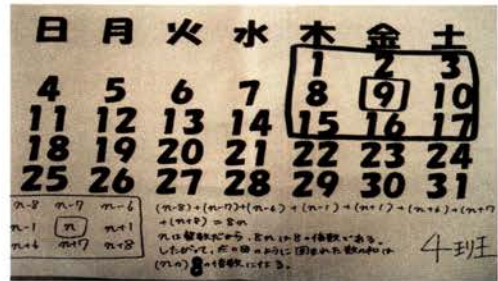 日 月 火 水 木 金 土
1 2 3
4 5 6 7 8 9 10
11 12 13 14 15 16 17
18 19 20 21 22 23 24
25 26 27 28 29 30 31
n-8 n-7 n-6
n-1 n n+1
n+6 n+7 n+8
(n-8)+(n-7)+(n-6)+(n-1)+(n+1)+(n+6)+(n+7)
+(n+8)=8n
nは整数だから、8nは8の倍数である。
したがって、左の図のように囲まれた数の和は
8の倍数になる。
4班